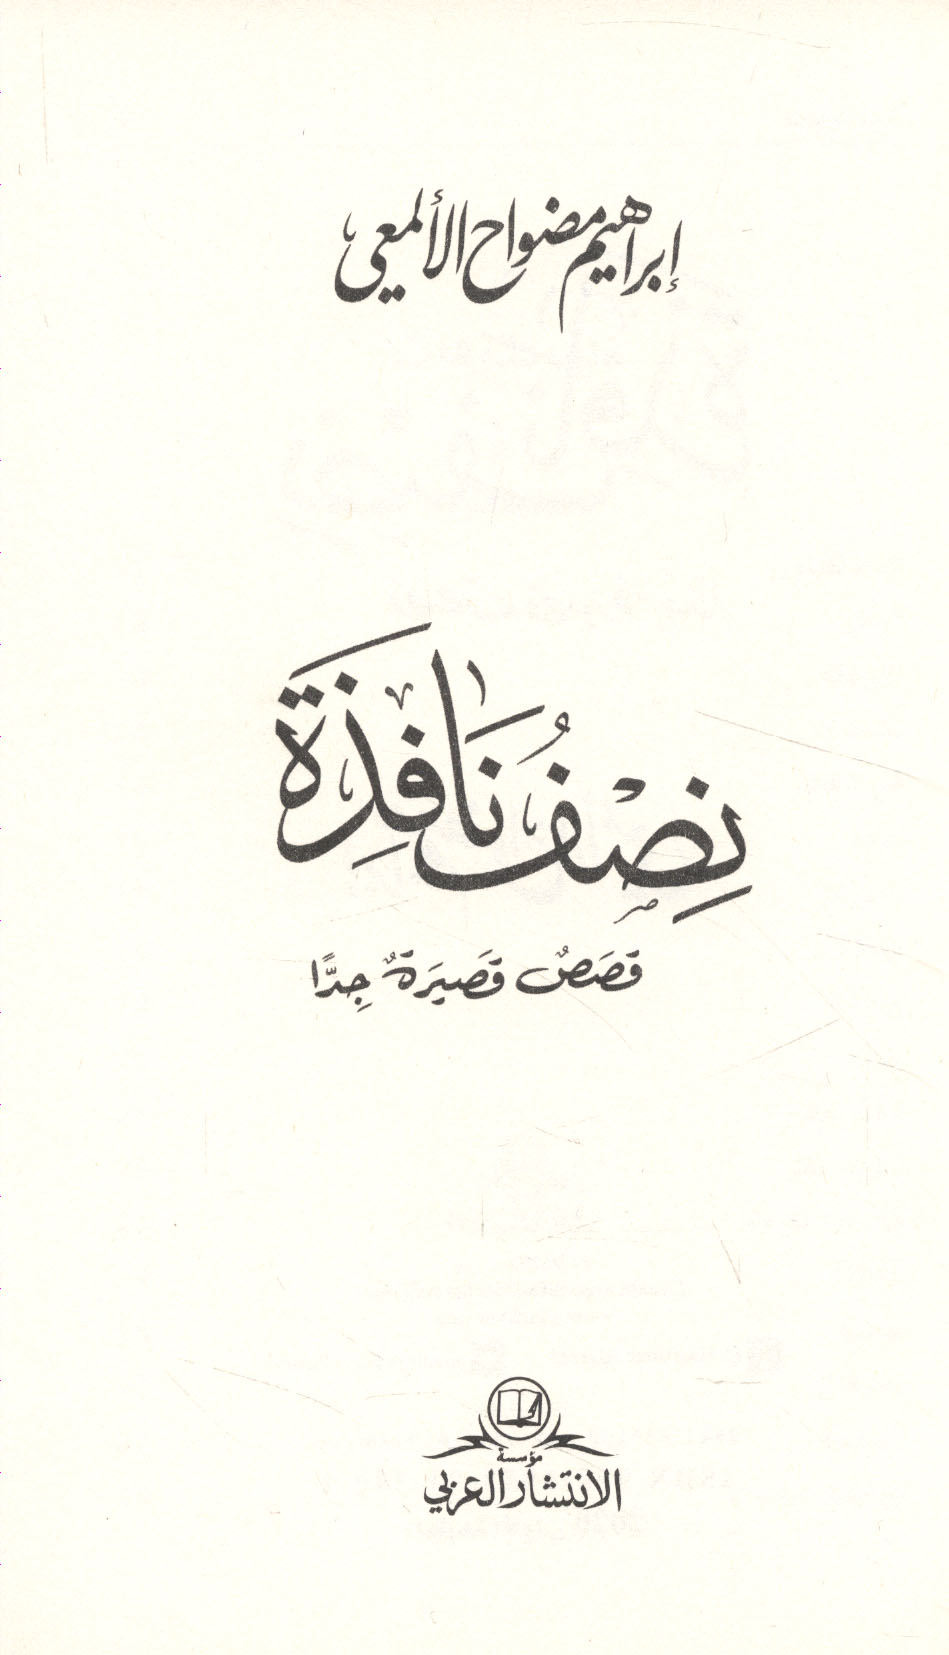 إبراهيم مضواح الألمعي
نِصْفُ نَافِذَة
قَصَصٌ قَصِيرَةٌ جِدًّا
مؤسسة
الانتشار العربي